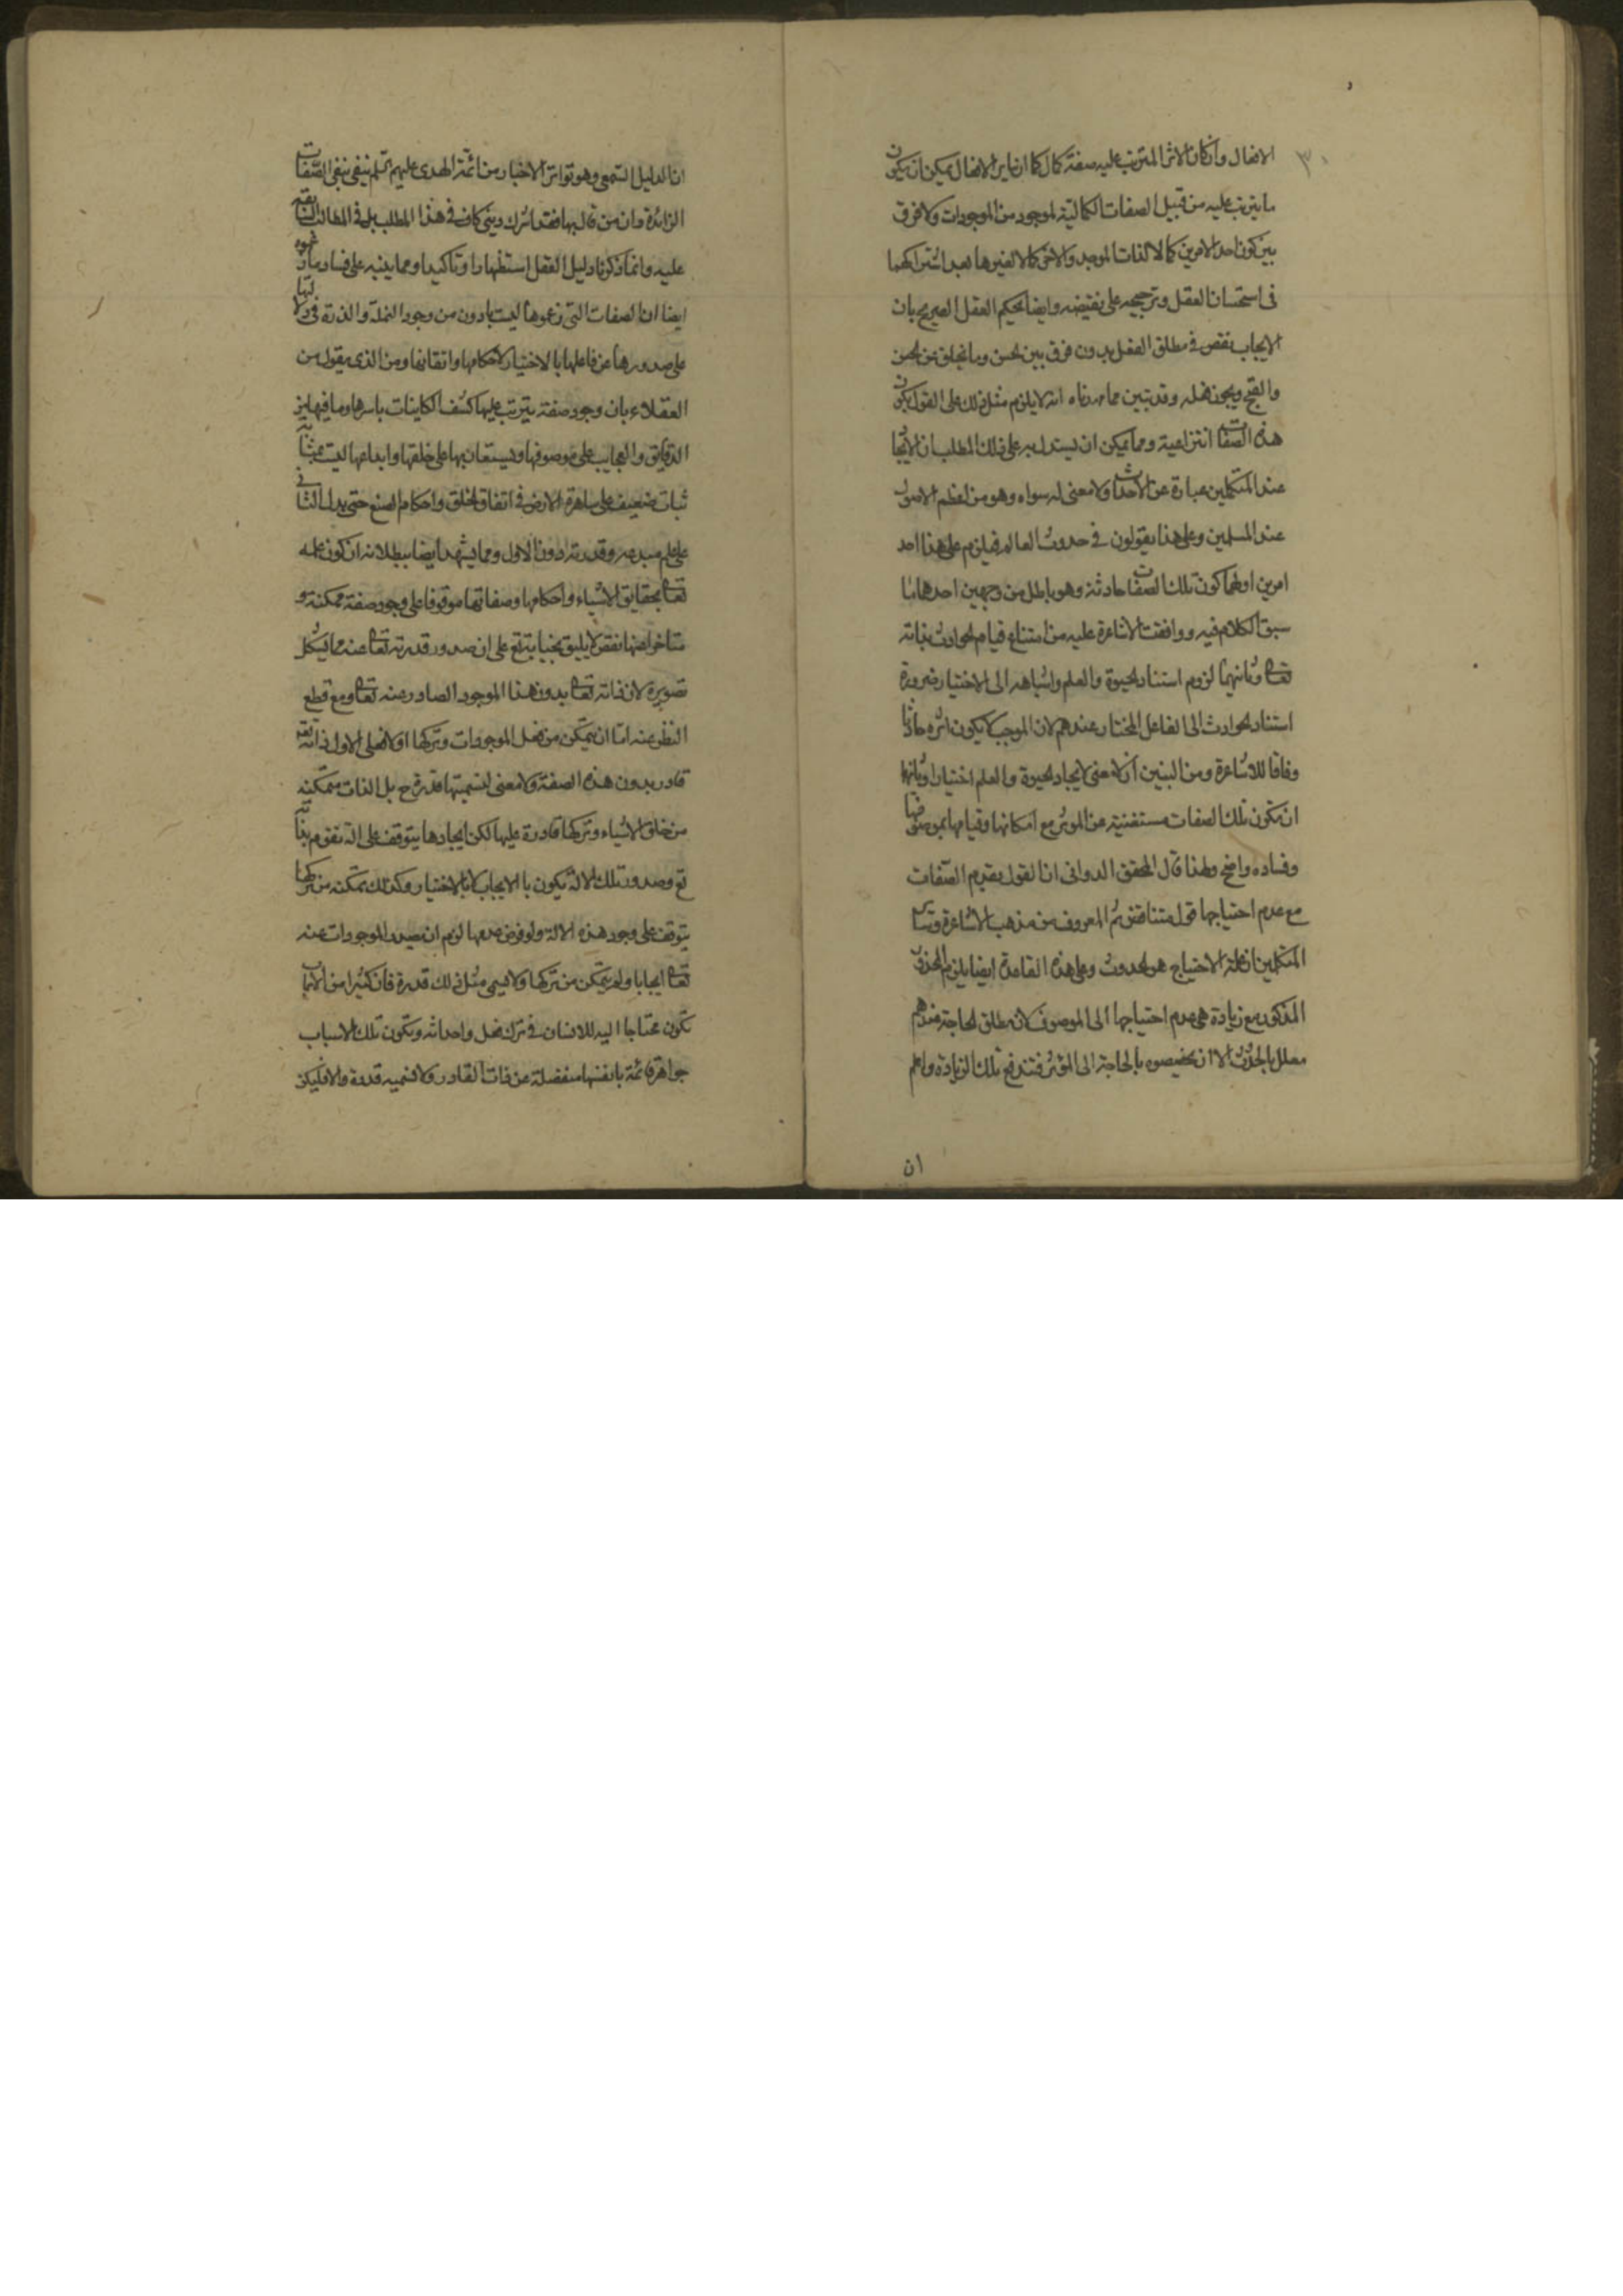 ٣٠
الافعال وان كان الاثر المترتب عليه صفة كمال كما ان غاير الافعال يمكن ان يكون
ما يترتب عليه من قبيل الصفات الكمالية لموجود من الموجودات ولا فرق
بين كون احد الامرين كمالا لذات الموجد والاخر كمالا لغيرها بعد اشتراكهما
فى استحسان العقل وترجيحه على نقيضه وايضا يحكم العقل الصريح بان
الايجاب نقص فى مطلق الفعل بدون فرق بين الحسن وما يخلق من الحسن
والقبح ويجوز فعله وقد تبين مما مهدناه انه لا يلزم مثل ذلك على القول بكون
هذه الصفات انتزاعية ومما يمكن ان يستدل به على ذلك المطلب ان الايجاد
عند المتكلمين عبارة عن الاحداث ولا معنى له سواه وهو من اعظم الاصول
عند المسلمين وعلى هذا يقولون فى حدوث العالم فيلزم على هذا احد
امرين اولهما كون تلك الصفات حادثة وهو باطل من وجهين احدهما ما
سبق الكلام فيه ووافقت الاشاعرة عليه من امتناع قيام الحوادث بذاته
تعالى وثانيهما لزوم استناد الحيوة والعلم واشباهه الى الاختيار ضرورة
استناد الحوادث الى الفاعل المختار عندهم لان الموجب لا يكون اثره حادثا
وفاقا للاشاعرة ومن البين ان لا معنى لايجاد الحيوة والعلم اختيارا وثانيها
ان تكون تلك الصفات مستغنية عن الموثر مع امكانها وقيامها بموصوفها
وفساده واضح ولهذا قال المحقق الدوانى ان القول بقدم الصفات
مع عدم احتياجها قول متناقض ثم المعروف من مذهب الاشاعرة وساير
المتكلمين ان علة الاحتياج هو الحدوث وعلى هذه القاعدة ايضا يلزم المحذور
المذكور مع زيادة هى عدم احتياجها الى الموصوف لان مطلق الحاجة عندهم
معلل بالحدوث الا ان يخصصوه بالحاجة الى المؤثر فتندفع تلك الزيادة واعلم
ان
ان الدليل السمعى وهو تواتر الاخبار من ائمة الهدى عليهم السلم ينفى بنفى الصفات
الزائدة وان من قال بها فقد اشرك وبنى كاف فى هذا المطلب بل فى المطالب السابقة
عليه وانما ذكرنا دليل العقل استظهارا وتاكيدا ومما ينبه على فساد ما زعموه
ايضا ان الصفات التى زعموها ليست بادون من وجود النملة والذرة فى دلالتها
على صدورها عن فاعلها بالاختيار لاحكامها واتقانها ومن الذى يقول من
العقلاء بان وجود صفة يترتب عليها كشف الكاينات باسرها وما فيها من
الدقايق والعجايب على موصوفها ويستعان بها على خلقها وابداعها ليست بمثابة
نبات ضعيف على ساهرة الارض فى اتقان الخلق واحكام الصنع حتى يدل الثانى
على علم مبدعه وقدرته دون الاول ومما يشهد ايضا ببطلانه ان كون علمه
تعالى بحقايق الاشياء واحكامها وصفاتها موقوفا على وجود صفة ممكنة و
متاخرا عنها نقص لا يليق بجنابه تع على ان صدور قدرته تعالى عنه مما يشكل
تصويره لان ذاته تعالى بدون هذا الموجود الصادر عنه تعالى ومع قطع
النظر عنه اما ان يتمكن من فعل الموجودات وتركها او لا فعلى الاول ذاته تعالى
قادر بدون هذه الصفة ولا معنى لتسميتها قدرة ح بل الذات متمكنة
من خلق الاشياء وتركها قادرة عليها لكن ايجادها يتوقف على الة تقوم بذاته
تع وصدور تلك الالة يكون بالايجاب لا بالاختيار وكذلك تمكنه من تركها
يتوقف على وجود هذه الالة ولو فرض عدمها لزم ان يصدر الموجودات عنه
تعالى ايجابا ولم يتمكن من تركها ولا يسمى مثل ذلك قدرة فان كثيرا من الاسباب
تكون محتاجا اليه للانسان فى ترك فعل واحداثه وتكون تلك الاسباب
جواهر قائمة بانفسها منفصلة عن ذات القادر ولا تسميه قدرة والا فليكن